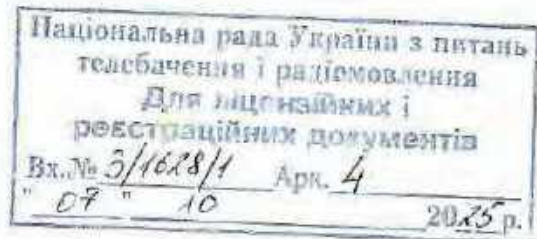 Національна рада України з питань
телебачення і радіомовлення
Для ліцензійних і
реєстраційних документів
Вх.№ 3/1628/1 Арк. 4
" 07 " 10 2025 р.